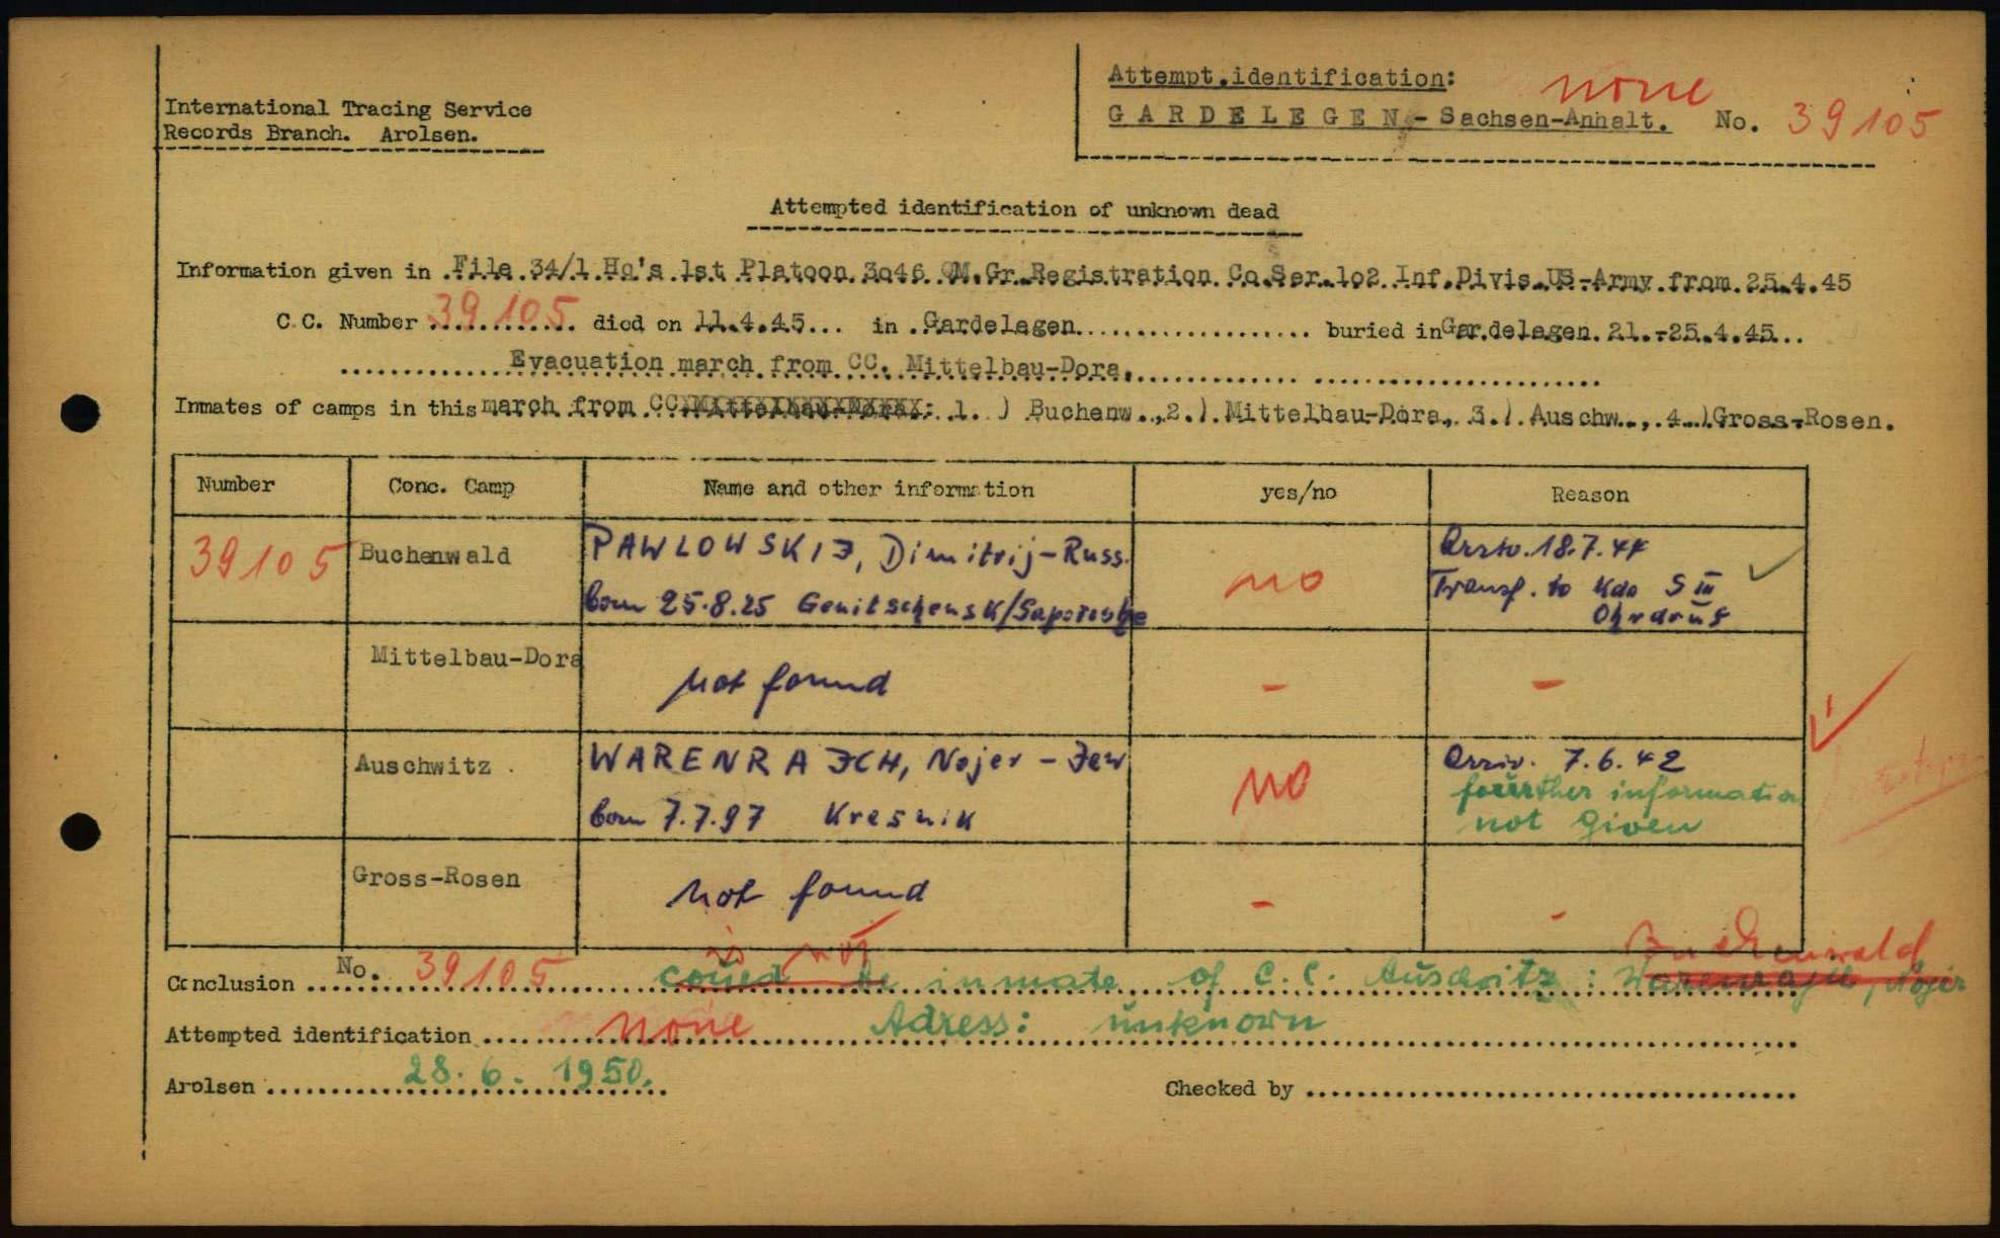 Attempt.identification:
none
International Tracing Service
Records Branch. Arolsen.
GARDELEGEN - Sachsen-Anhalt. No. 39105
Attempted identification of unknown dead
Information given in File 34/1 Hq's 1st Platoon 3o46 QM.Gr.Registration Co.Ser.1o2 Inf.Divis.US-Army from 25.4.45
C.C. Number 39105 died on 11.4.45 in Gardelegen buried in Gardelegen 21.-25.4.45
Evacuation march from CC. Mittelbau-Dora.
Inmates of camps in this march from CC Mittelbau-Dora: 1.) Buchenw., 2.) Mittelbau-Dora, 3.) Auschw., 4.) Gross-Rosen.
Number Conc. Camp Name and other information yes/no Reason
39105 Buchenwald PAWLOWSKIJ, Dimitrij-Russ. no Arriv. 18.7.44
born 25.8.25 Genitschensk/Saporoshje Transf. to Kdo S III
Ohrdruf
Mittelbau-Dora not found - -
Auschwitz WARENRAJCH, Nojer - Jew no Arriv. 7.6.42
born 7.7.97 Kresnik fourther information
not given
Gross-Rosen not found - -
is not Buchenwald
Conclusion No. 39105 coued be inmate of C.C. Auschwitz: Warenrajch, Nojer
Attempted identification none Adress: unknown
Arolsen 28.6.1950. Checked by